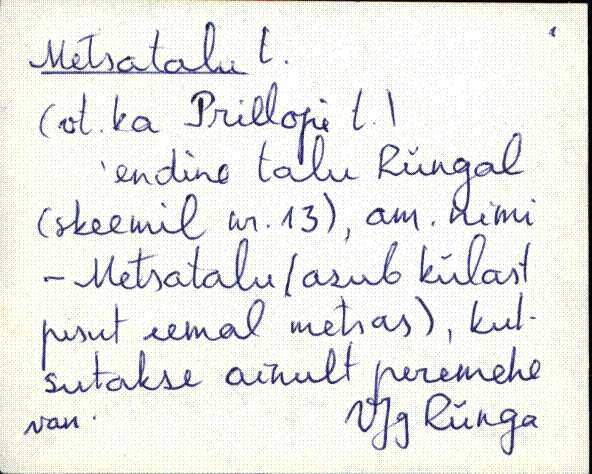 Metsatalu t.
(vt. ka Prillopi t.)
'endine talu Rüngal
(skeemil nr. 13), am. nimi
- Metsatalu (asub külast
pisut eemal metsas), kut-
sutakse ainult peremehe
van. VJg Rünga